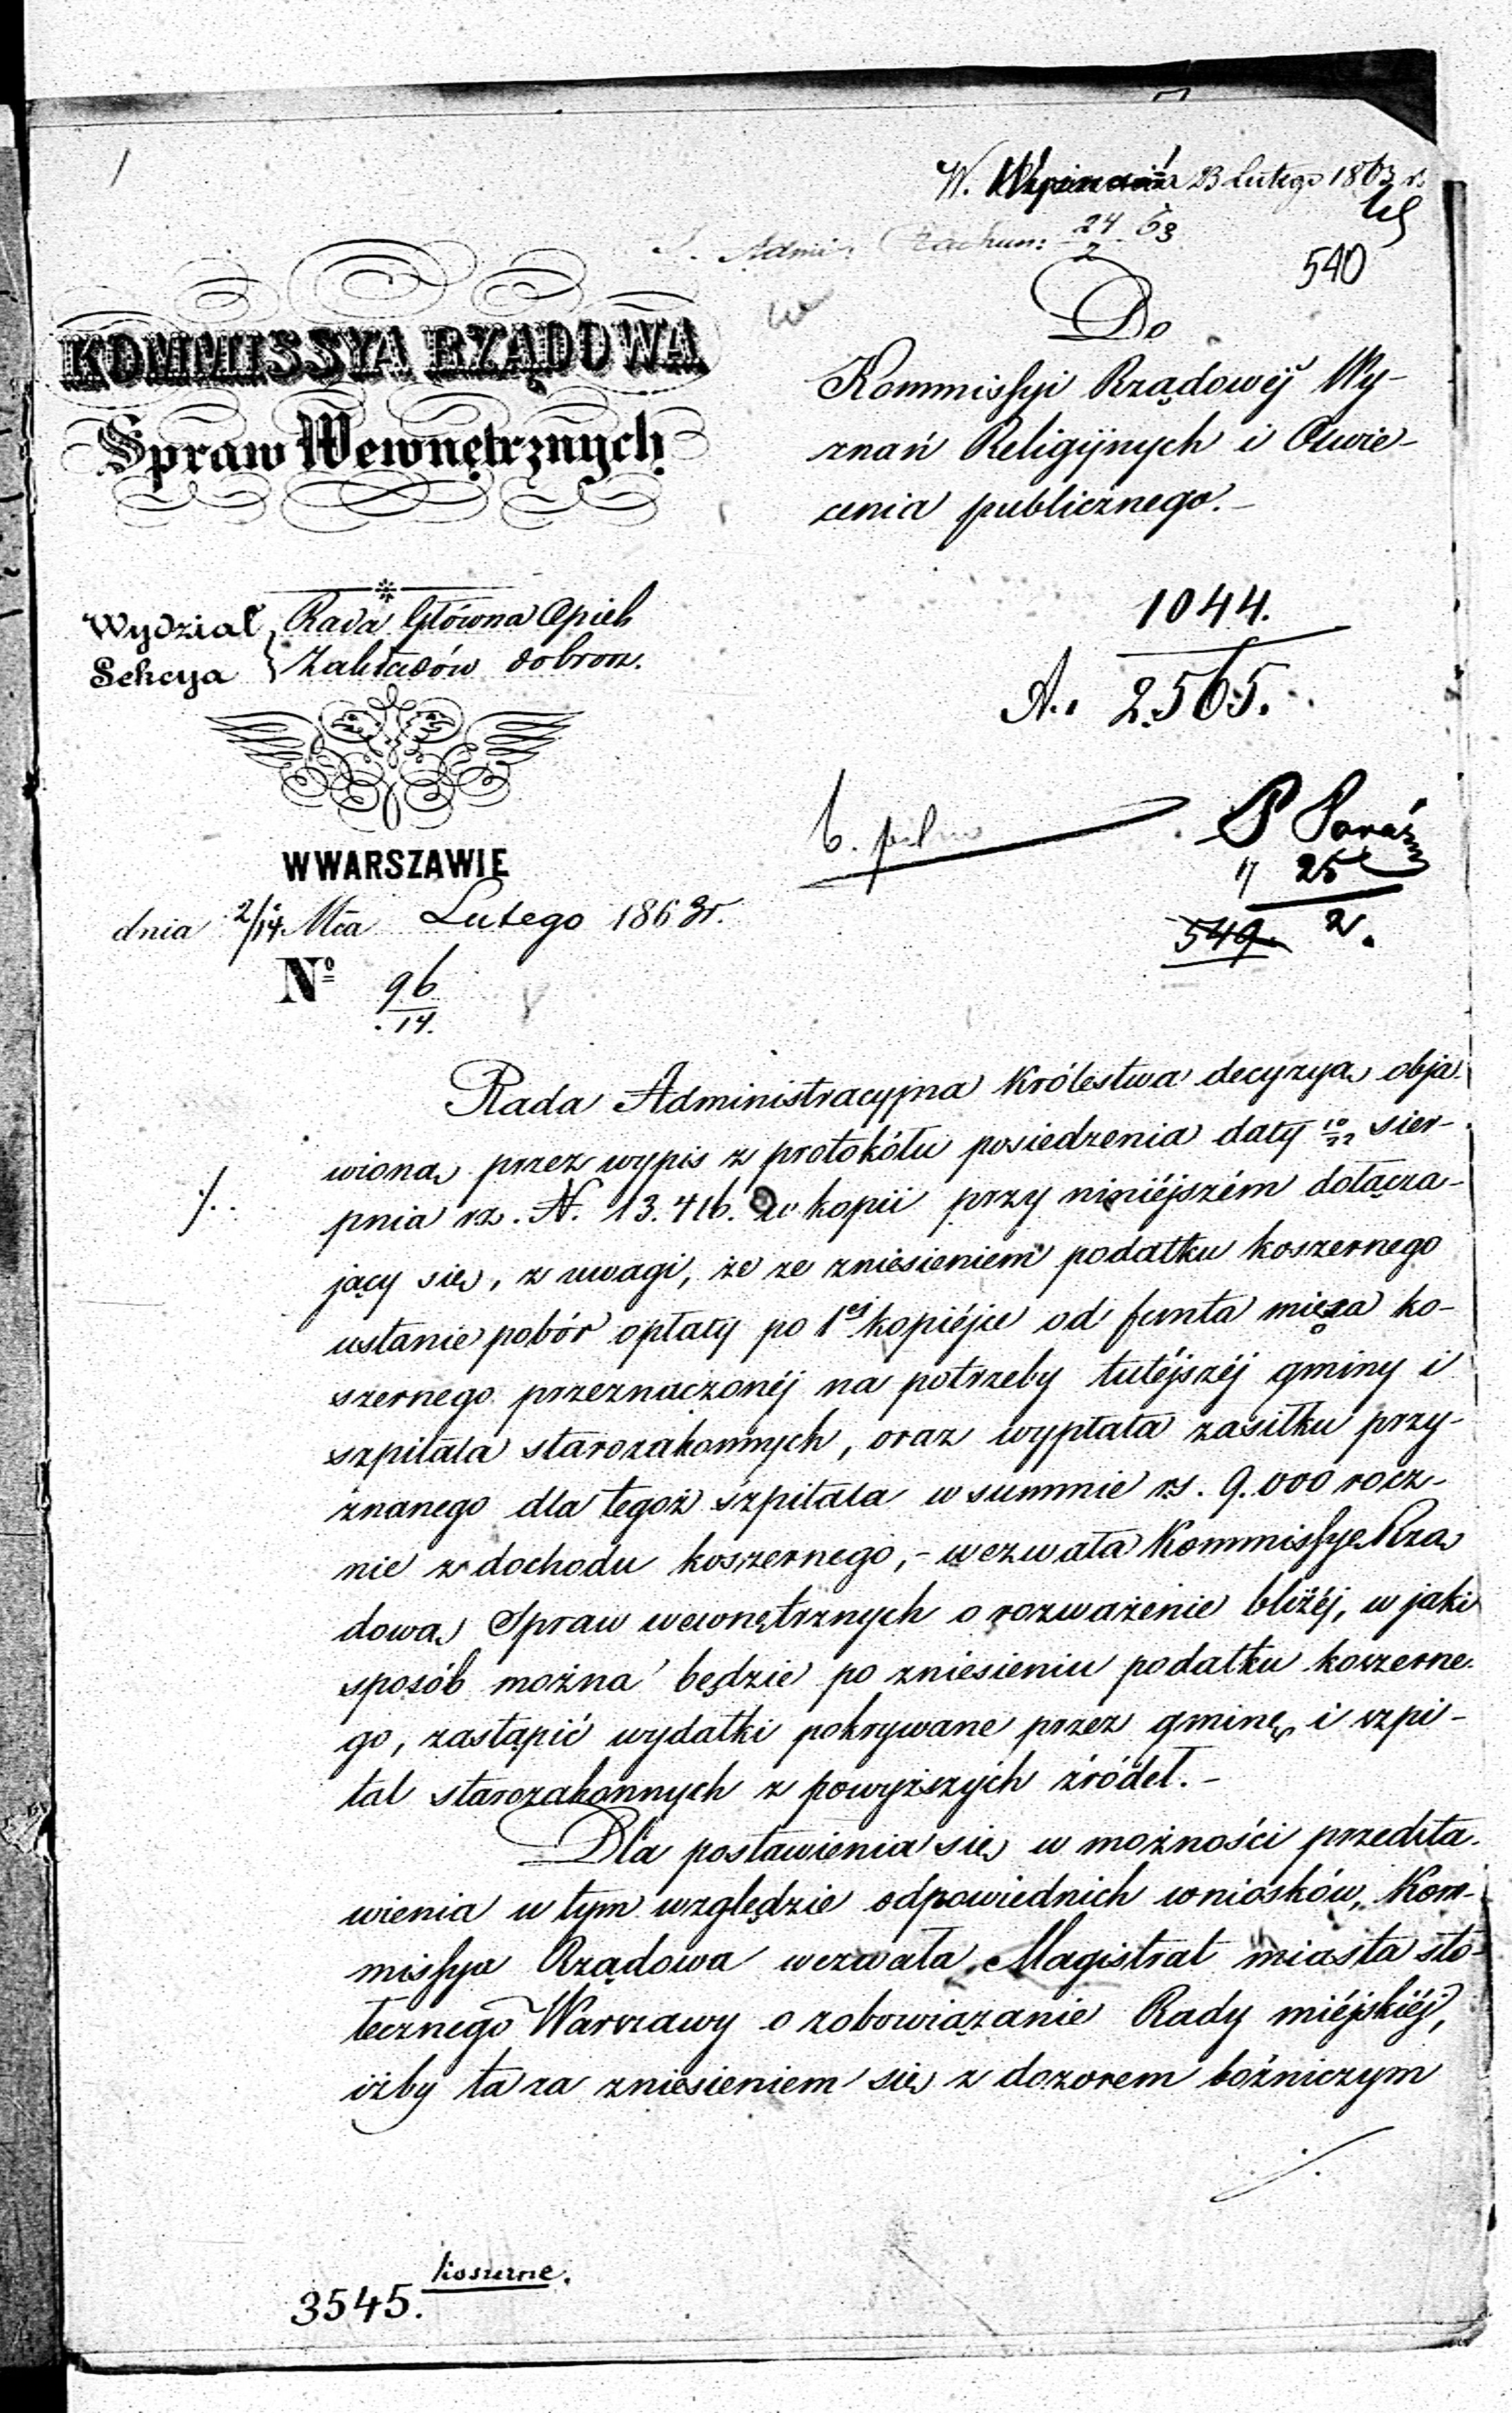 W. 23 lutego 1863 r.
Admi. Rachun: 24/2 63
540
Do
KOMMISSYA RZĄDOWA
Spraw Wewnętrznych
Kommissyi Rządowéj Wy-
znań Religijnych i Oświe-
cenia publicznego.-
Wydział Rada Główna Opiek
Sekcya Zakładów dobrocz.
1044.
A. 2565.
W WARSZAWIE
b. pilno
P
25
2.
549.
dnia 2/14 Mca Lutego 1863 r.
No 96/14.
Rada Administracyjna Królestwa decyzyą obja-
wioną przez wypis z protokółu posiedzenia daty 10/22 sier-
pnia rz. N. 13.416. w kopii przy niniéjszém dołącza-
jący się, z uwagi, że ze zniesieniem podatku koszernego
ustanie pobór opłaty po 1ej kopiéjce od funta mięsa ko-
szernego przeznaczonéj na potrzeby tutéjszéj gminy i
szpitala starozakonnych, oraz wypłata zasiłku przy-
znanego dla tegoż szpitala w summie rs. 9.000 rocz-
nie z dochodu koszernego,- wezwała Kommissyę Rzą-
dową Spraw wewnętrznych o rozważenie bliżéj, w jaki
sposób można będzie po zniesieniu podatku koszerne-
go, zastąpić wydatki pokrywane przez gminę i szpi-
tal starozakonnych z powyższych źródeł.-
Dla postawienia się w możności przedsta-
wienia w tym względzie odpowiednich wniosków, Kom-
missya Rządowa wezwała Magistrat miasta sto-
łecznego Warszawy o zobowiązanie Rady miéjskiéj,
iżby ta za zniesieniem się z dozorem bóżniczym
koszerne.
3545.